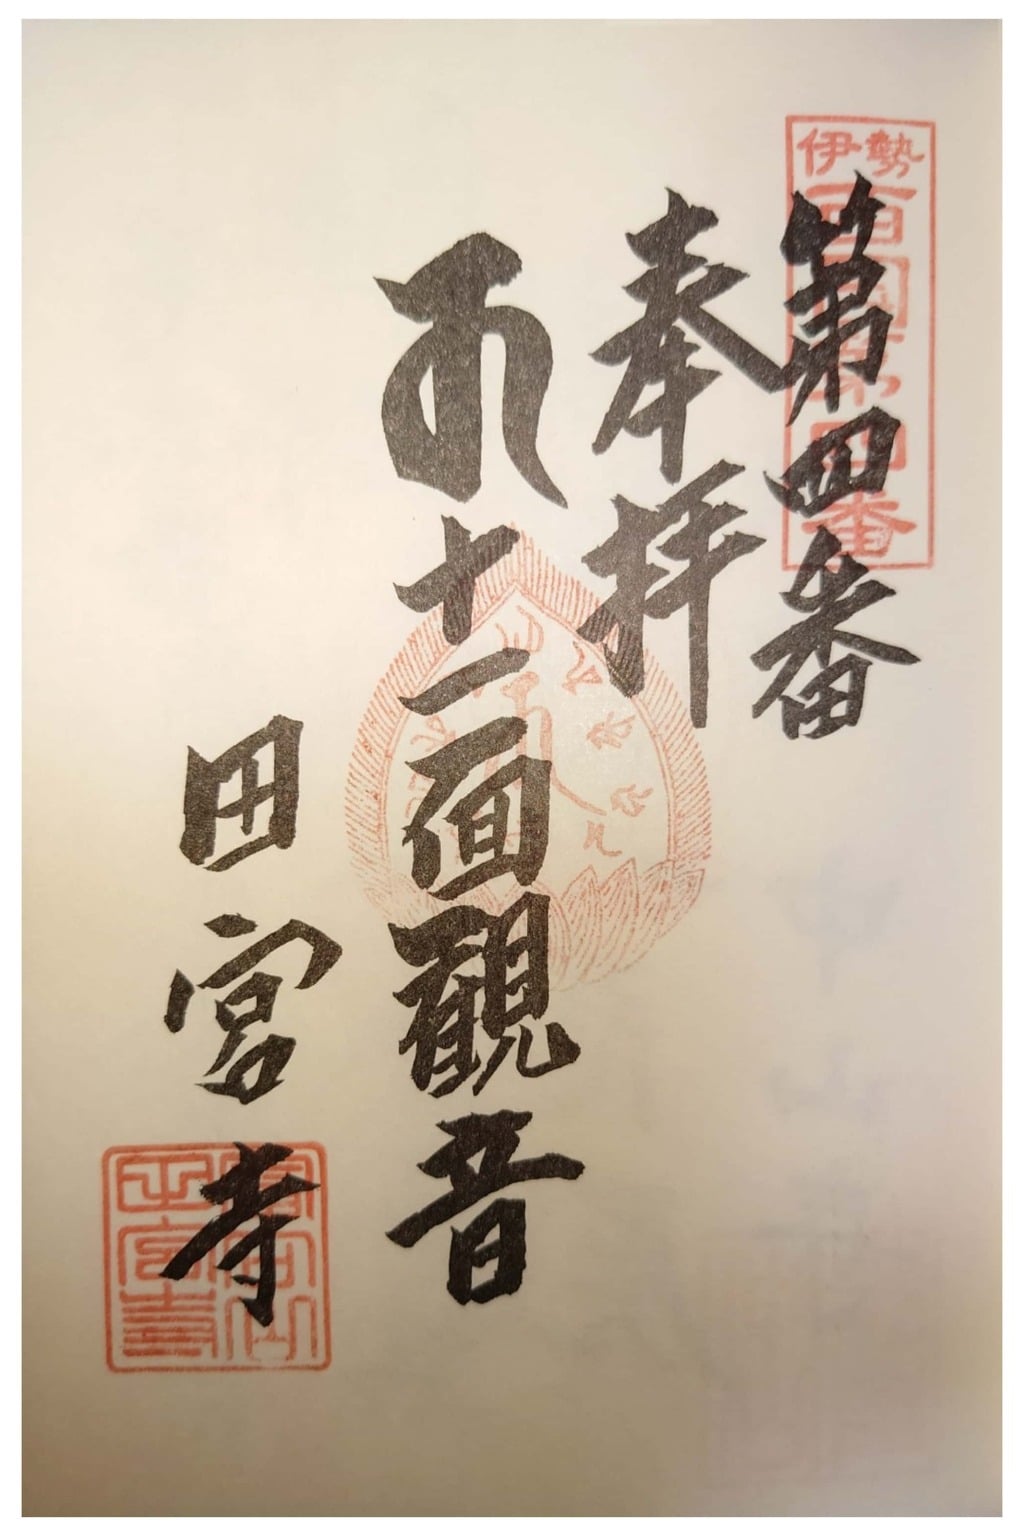 伊勢
西国第四番
第四番
奉拝
十一面觀音
田宮寺